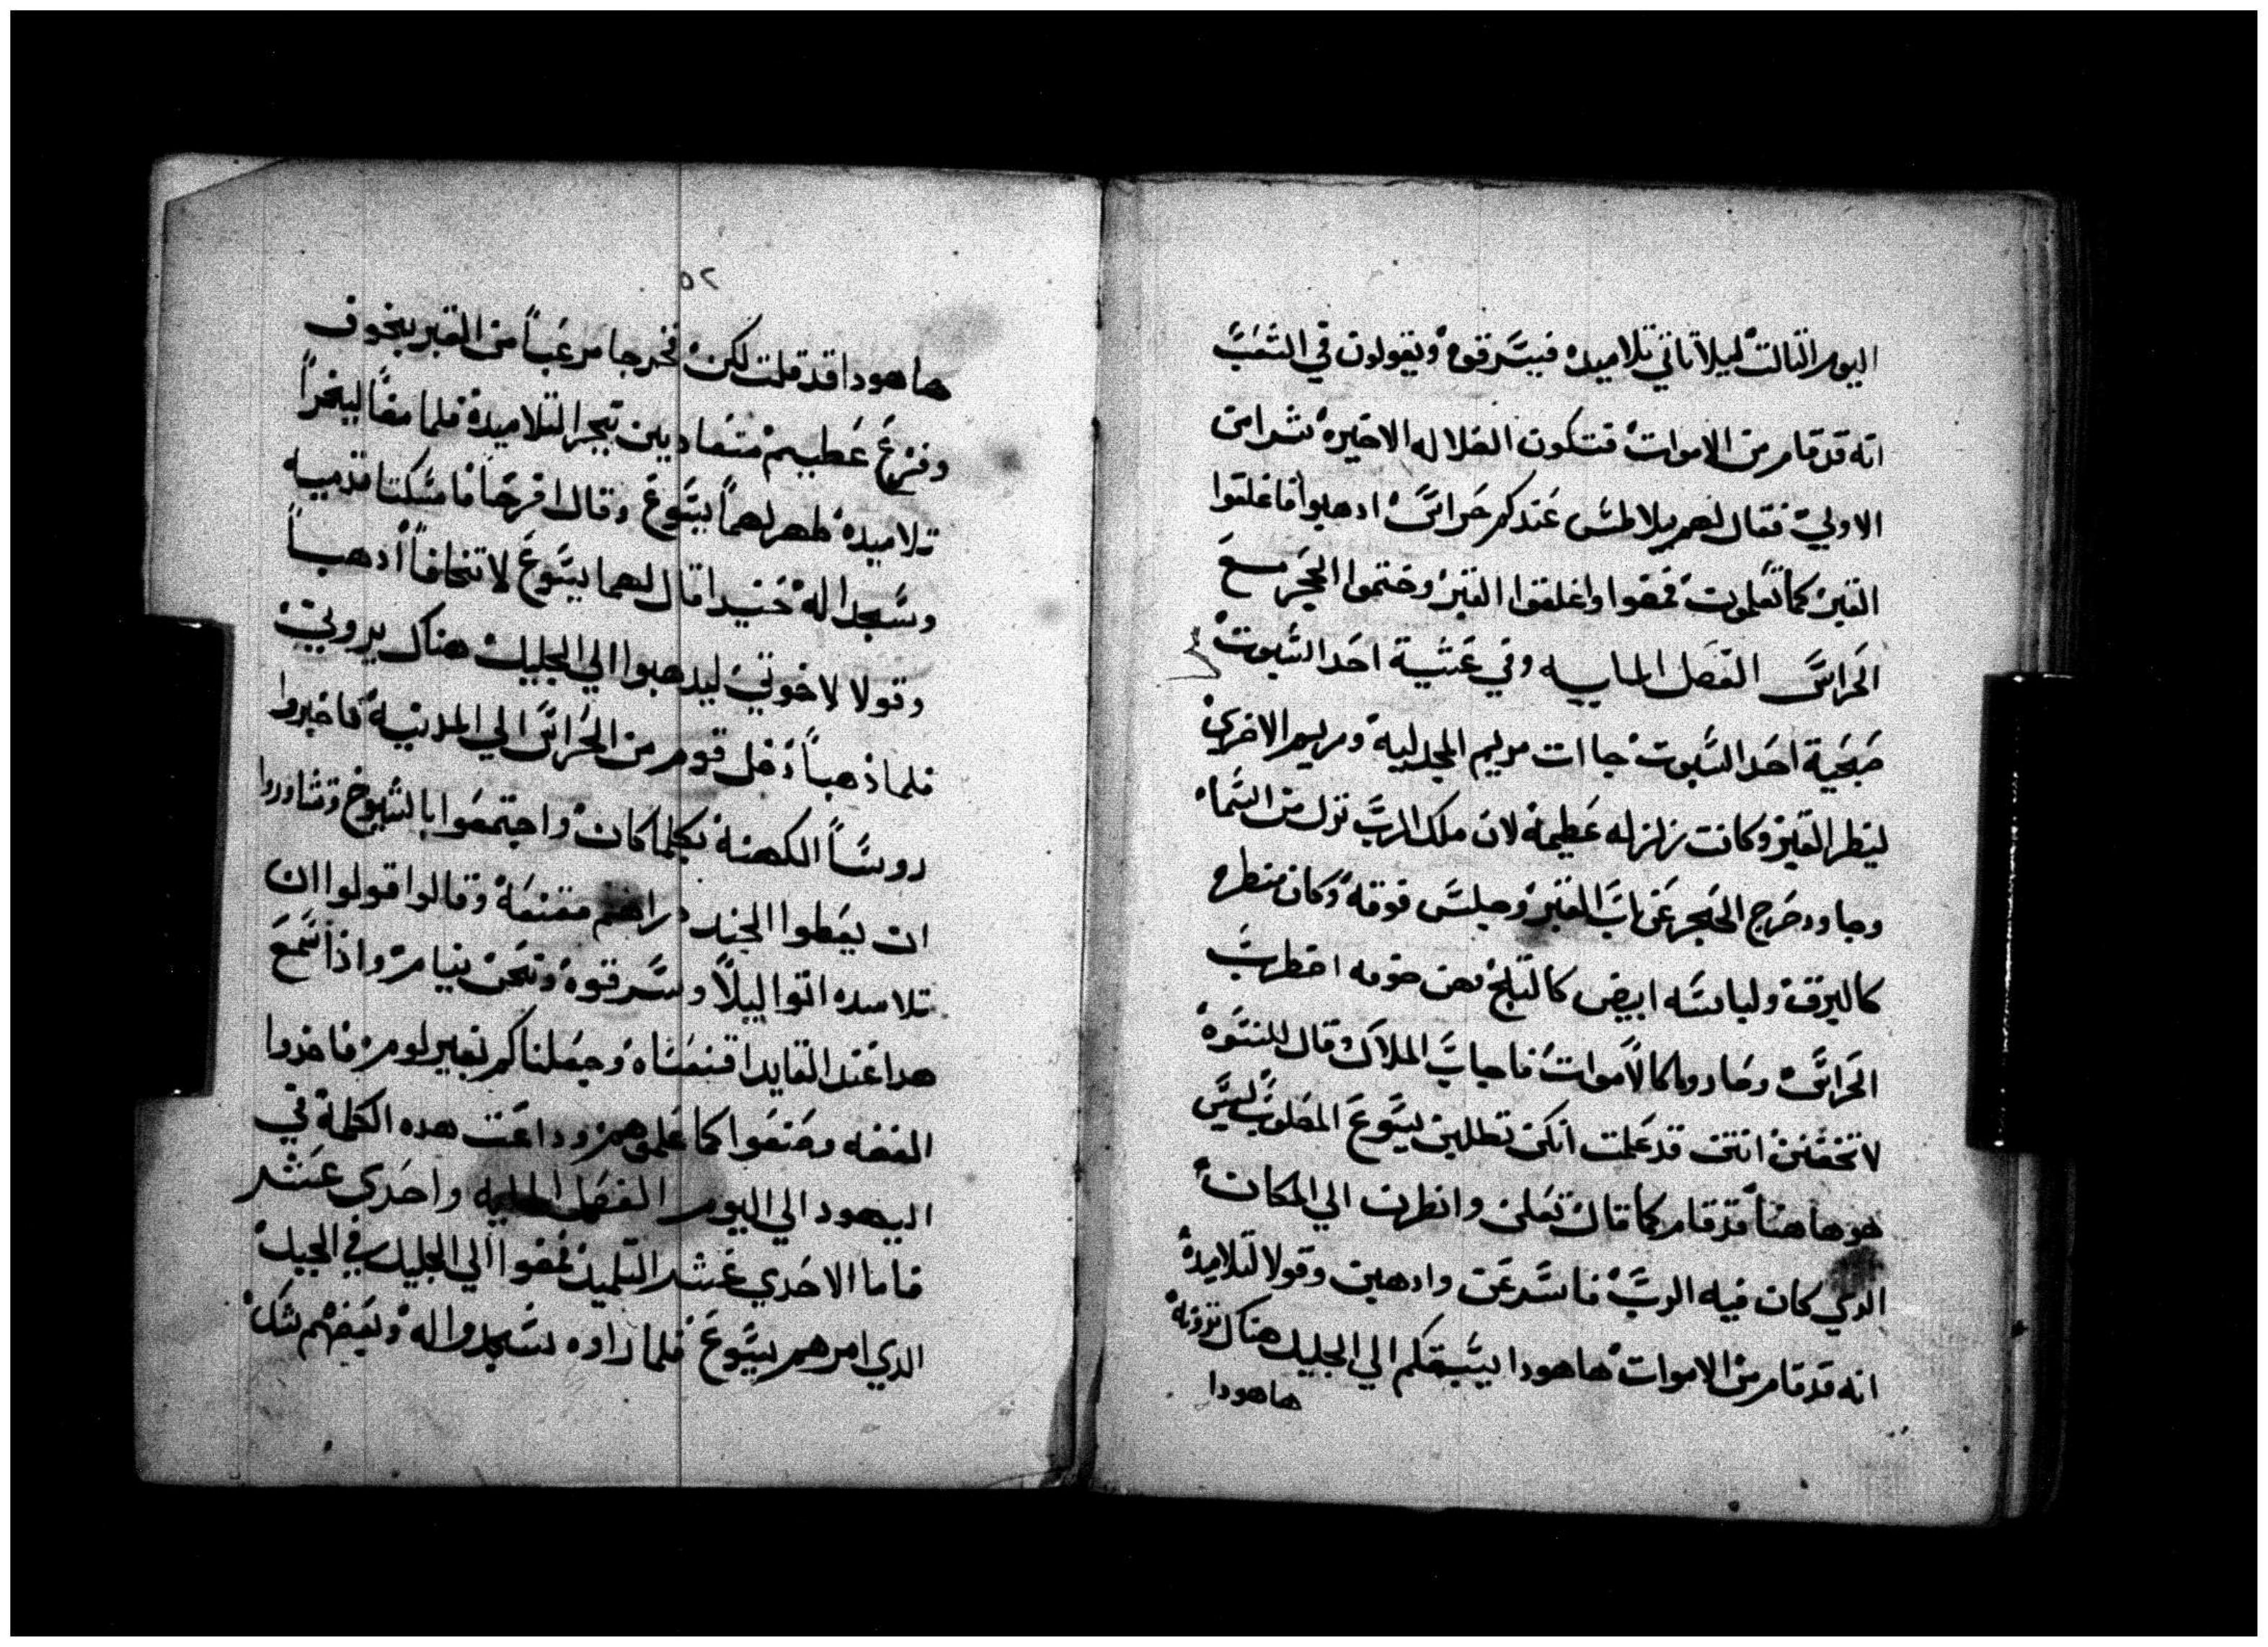 اليوم التالت ليلا تاتي تلاميده فيسرقوه ويقولون في الشعب
انه قد قام من الاموات فتكون الضلاله الاخيره شر امن
الاولي فقال لهم بيلاطس عندكم حراس ادهبوا فاغلقوا
القبر كما تعلمون فمضوا واغلقوا القبر وختموا الحجر مع
الحراس الفصل المايه وفي عشية احد السبوت
صبحية احد السبوت جاات مريم المجدلية ومريم الاخري
لينظر القبر وكانت زلزله عظيمة لان ملاك الرب نزل من السماء
وجا ودحرج الحجر عن باب القبر وجلس فوقه وكان منظره
كالبرق ولباسه ابيض كالتلج فمن خوفه اضطرب
الحراس وصاروا كالاموات فاجاب الملاك وقال للنسوه
لا تخفن انتن قد علمت انكن تطلبن يسوع المصلوب ليس
هو هاهنا قد قام كما قال تعلن وانظرن الي المكان
الدي كان فيه الرب فاسرعن وادهبن وقولا لتلاميده
انه قد قام من الاموات هاهودا يسبقكم الي الجليل هناك ترونه
هاهودا
٥٢
هاهودا قد قلت لكن فخرجا مرعبا من القبر بخوف
وفزع عظيم متعاديين تجر التلاميده فلما مضا ليخبرا
تلاميده ظهر لهما يسوع وقال افرحا فامسكتا قدميه
وسجدا له حنيدا قال لهما يسوع لا تخافا ادهبا
وقولا لاخوتي ليدهبوا الي الجليل هناك يروني
فلما ذهبا دخل قوم من الحراس الي المدينة فاخبروا
روسا الكهنة بكلما كان واجتمعوا بالشيوخ وتشاوروا
ان يعطوا الجند دراهم مقنعة وقالوا قولوا ان
تلاميده اتوا ليلا وسرقوه ونحن نيام واذا سمع
هدا عند القايد اقنعناه وجعلناكم بغير لوم فاخدوا
الفضه وصنعوا كما علموهم وداعت هده الكلمة في
اليهود الي اليوم الفصل المايه واحدي عشر
فاما الاحدي عشر التلميد فمضوا الي الجليل في الجبل
الدي امرهم يسوع فلما راوه سجدوا له وبعضهم شك